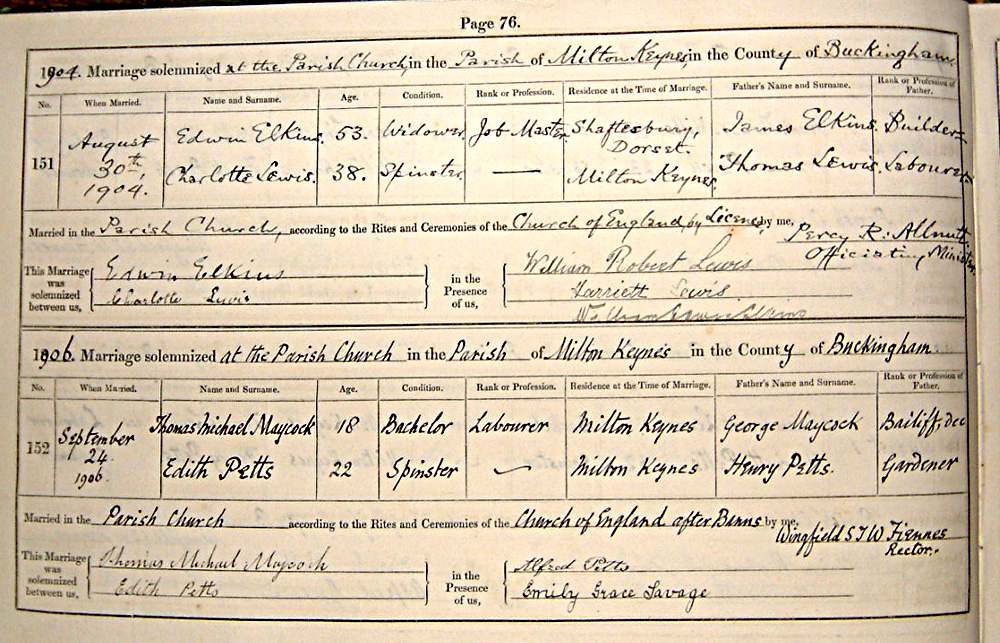 Page 76.
1904. Marriage solemnized at the Parish Church, in the Parish of Milton Keynes, in the County of Buckingham.
No. When Married. Name and Surname. Age. Condition. Rank or Profession. Residence at the Time of Marriage. Father's Name and Surname. Rank or Profession of Father.
151 August 30th, 1904. Edwin Elkins. 53. Widower. Job Master. Shaftesbury, Dorset. James Elkins. Builder
Charlotte Lewis. 38. Spinster. — Milton Keynes. Thomas Lewis. Labourer
Married in the Parish Church, according to the Rites and Ceremonies of the Church of England, by Licence, by me, Percy R. Allnutt. Officiating Minister
This Marriage was solemnized between us, Edwin Elkins Charlotte Lewis in the Presence of us, William Robert Lewis Harriett Lewis William Elkins
1906. Marriage solemnized at the Parish Church in the Parish of Milton Keynes in the County of Buckingham
No. When Married. Name and Surname. Age. Condition. Rank or Profession. Residence at the Time of Marriage. Father's Name and Surname. Rank or Profession of Father.
152 September 24 1906 Thomas Michael Maycock 18 Bachelor Labourer Milton Keynes George Maycock Bailiff, dec
Edith Petts 22 Spinster — Milton Keynes Henry Petts. Gardener
Married in the Parish Church according to the Rites and Ceremonies of the Church of England after Banns by me, Wingfield S T W Fiennes Rector.
This Marriage was solemnized between us, Thomas Michael Maycock Edith Petts in the Presence of us, Alfred Petts Emily Grace Savage